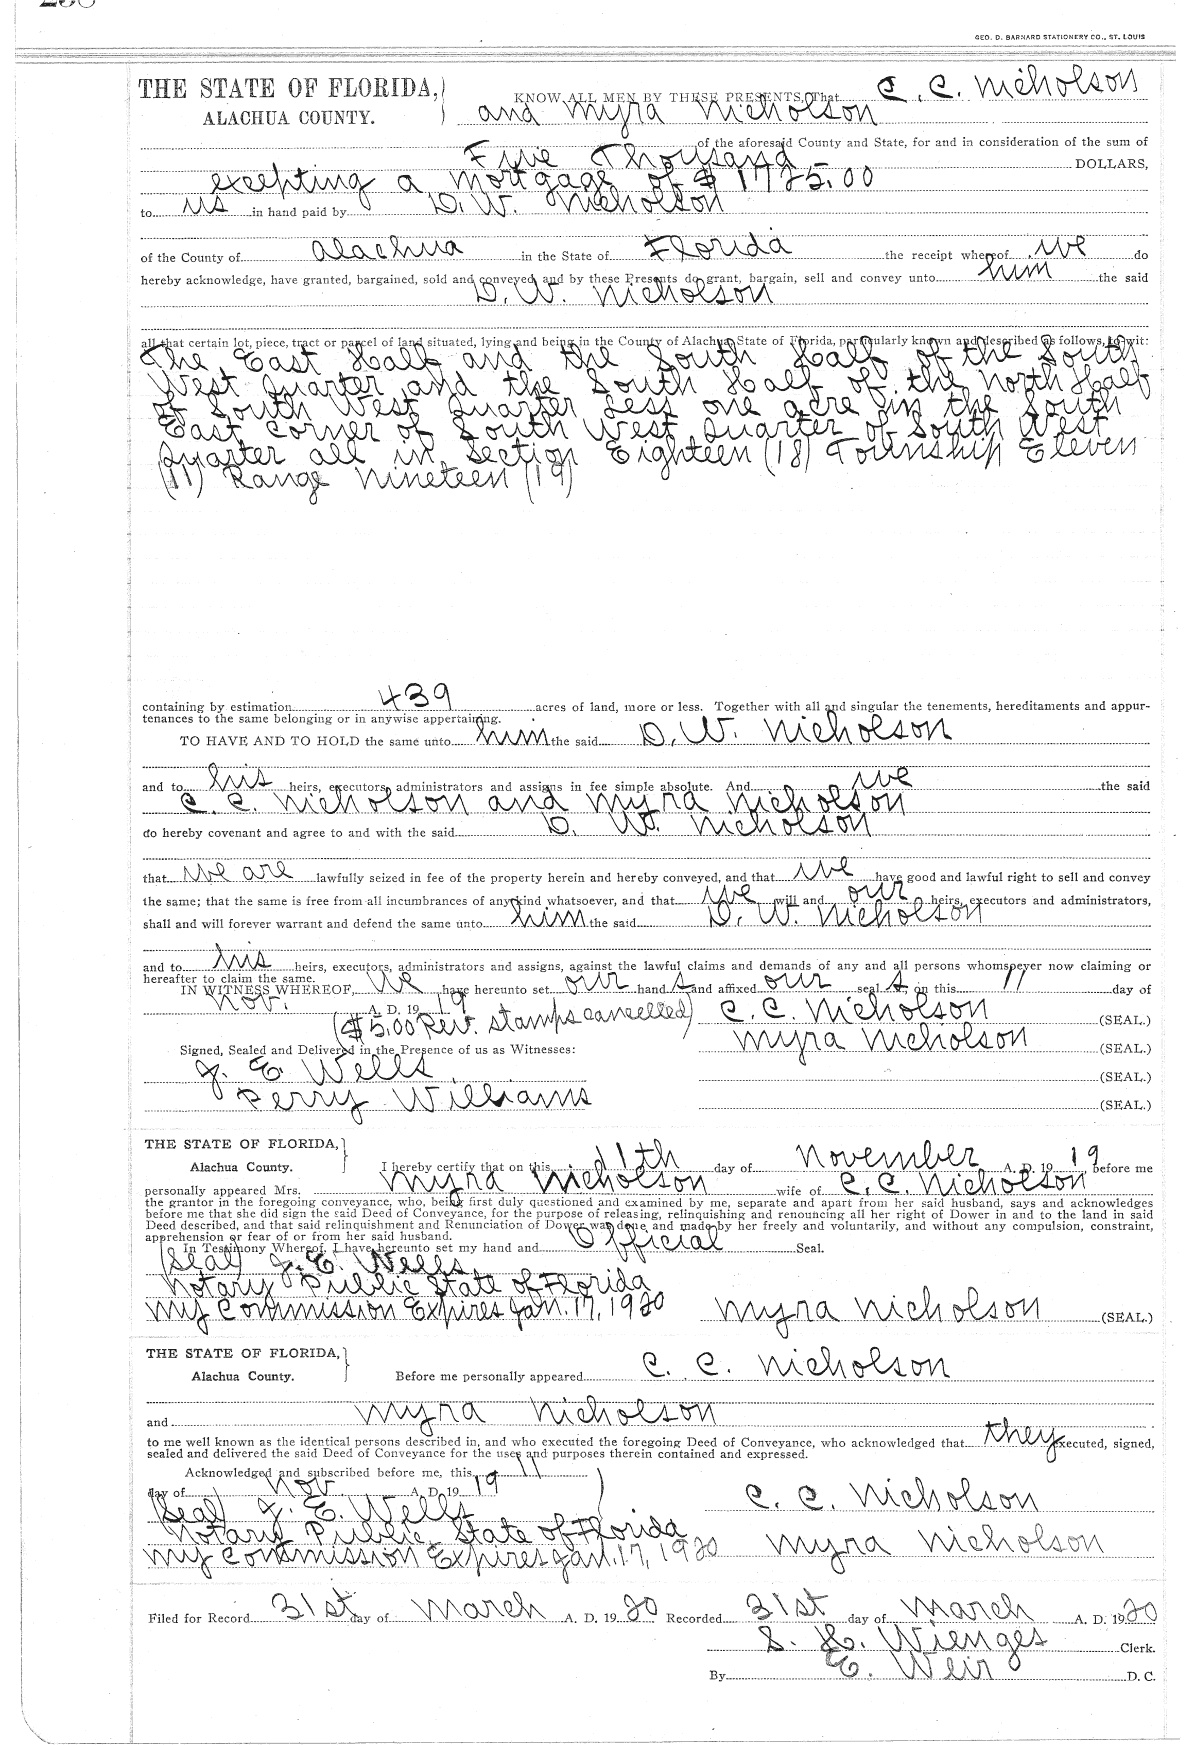 GEO. D. BARNARD STATIONERY CO., ST. LOUIS
THE STATE OF FLORIDA, KNOW ALL MEN BY THESE PRESENTS, That C. C. Nicholson
ALACHUA COUNTY. and Myra Nicholson
of the aforesaid County and State, for and in consideration of the sum of
Five Thousand DOLLARS,
excepting a mortgage of $1725.00
to us in hand paid by D. W. Nicholson
of the County of Alachua in the State of Florida the receipt whereof we do
hereby acknowledge, have granted, bargained, sold and conveyed, and by these Presents do grant, bargain, sell and convey unto him the said
D. W. Nicholson
all that certain lot, piece, tract or parcel of land situated, lying and being in the County of Alachua State of Florida, particularly known and described as follows, to wit:
The East Half and the South Half of the South
West Quarter and the South Half of the North Half
of South West Quarter Less one acre in the South
East corner of South West Quarter of South West
Quarter all in Section Eighteen (18) Township Eleven
(11) Range Nineteen (19)
containing by estimation 439 acres of land, more or less. Together with all and singular the tenements, hereditaments and appur-
tenances to the same belonging or in anywise appertaining.
TO HAVE AND TO HOLD the same unto him the said D. W. Nicholson
and to his heirs, executors, administrators and assigns in fee simple absolute. And we the said
C. C. Nicholson and Myra Nicholson
do hereby covenant and agree to and with the said D. W. Nicholson
that we are lawfully seized in fee of the property herein and hereby conveyed, and that we have good and lawful right to sell and convey
the same; that the same is free from all incumbrances of any kind whatsoever, and that we will and our heirs, executors and administrators,
shall and will forever warrant and defend the same unto him the said D. W. Nicholson
and to his heirs, executors, administrators and assigns, against the lawful claims and demands of any and all persons whomsoever now claiming or
hereafter to claim the same.
IN WITNESS WHEREOF, We have hereunto set our hand s and affixed our seal s, on this 11 day of
Nov. A. D. 19 19
($5.00 Rev. stamps cancelled) C. C. Nicholson (SEAL.)
Myra Nicholson (SEAL.)
Signed, Sealed and Delivered in the Presence of us as Witnesses:
J. E. Wells (SEAL.)
Perry Williams (SEAL.)
THE STATE OF FLORIDA,
Alachua County. I hereby certify that on this 11th day of November A. D. 19 19 before me
personally appeared Mrs. Myra Nicholson wife of C. C. Nicholson
the grantor in the foregoing conveyance, who, being first duly questioned and examined by me, separate and apart from her said husband, says and acknowledges
before me that she did sign the said Deed of Conveyance, for the purpose of releasing, relinquishing and renouncing all her right of Dower in and to the land in said
Deed described, and that said relinquishment and Renunciation of Dower was done and made by her freely and voluntarily, and without any compulsion, constraint,
apprehension or fear of or from her said husband.
In Testimony Whereof, I have hereunto set my hand and Official Seal.
(Seal) J. E. Wells
Notary Public State of Florida
My Commission Expires Jan. 17, 1920 Myra Nicholson (SEAL.)
THE STATE OF FLORIDA,
Alachua County. Before me personally appeared C. C. Nicholson
and Myra Nicholson
to me well known as the identical persons described in, and who executed the foregoing Deed of Conveyance, who acknowledged that they executed, signed,
sealed and delivered the said Deed of Conveyance for the uses and purposes therein contained and expressed.
Acknowledged and subscribed before me, this 11
day of Nov. A. D. 19 19
(Seal) J. E. Wells C. C. Nicholson
Notary Public, State of Florida
My Commission Expires Jan. 17, 1920 Myra Nicholson
Filed for Record 31st day of March A. D. 19 20 Recorded 31st day of March A. D. 19 20
S. H. Wienges Clerk.
By E. Weir D. C.